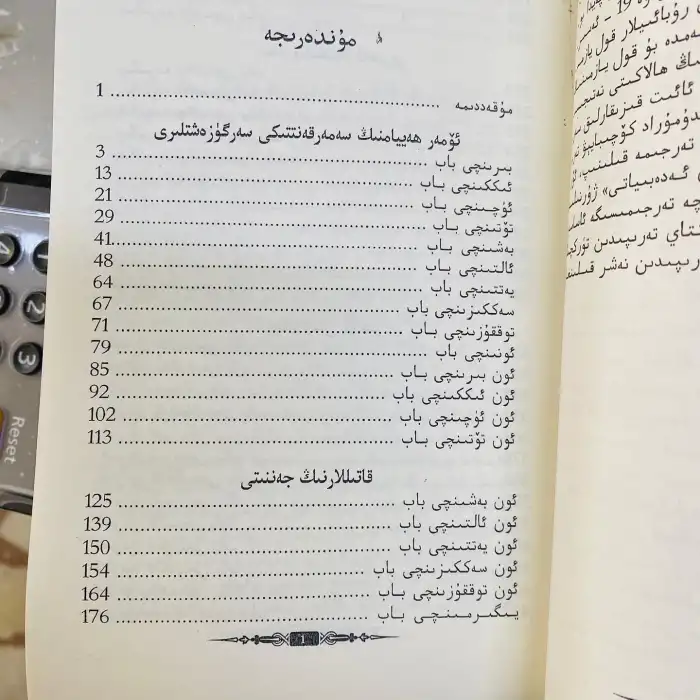 مۇندەرىجە
مۇقەددىمە ........................................ 1
ئۆمەر ھەييامنىڭ سەمەرقەنتتىكى سەرگۈزەشتلىرى
بىرىنچى باب ........................................ 3
ئىككىنچى باب ........................................ 13
ئۈچىنچى باب ........................................ 21
تۆتىنچى باب ........................................ 29
بەشىنچى باب ........................................ 41
ئالتىنچى باب ........................................ 48
يەتتىنچى باب ........................................ 64
سەككىزىنچى باب ........................................ 67
توققۇزىنچى باب ........................................ 71
ئونىنچى باب ........................................ 79
ئون بىرىنچى باب ........................................ 85
ئون ئىككىنچى باب ........................................ 92
ئون ئۈچىنچى باب ........................................ 102
ئون تۆتىنچى باب ........................................ 113
قاتىللارنىڭ جەننىتى
ئون بەشىنچى باب ........................................ 125
ئون ئالتىنچى باب ........................................ 139
ئون يەتتىنچى باب ........................................ 150
ئون سەككىزىنچى باب ........................................ 154
ئون توققۇزىنچى باب ........................................ 164
يىگىرمىنچى باب ........................................ 176
1
رۇبائىيلار قول ياز
ھەمدە بۇ قول يازمىنى
نىڭ ھالاكىتى نەتىجى
ئائىت قىزىقارلىق
تەرجىمە قىلىنىپ،
ئەدەبىياتى» ژۇرنىلى
چە تەرجىمىسىگە ئاساس
تەرىپىدىن تۈركچە
رىپىدىن نەشر قىلىنغا
1
2
3
4
Reset